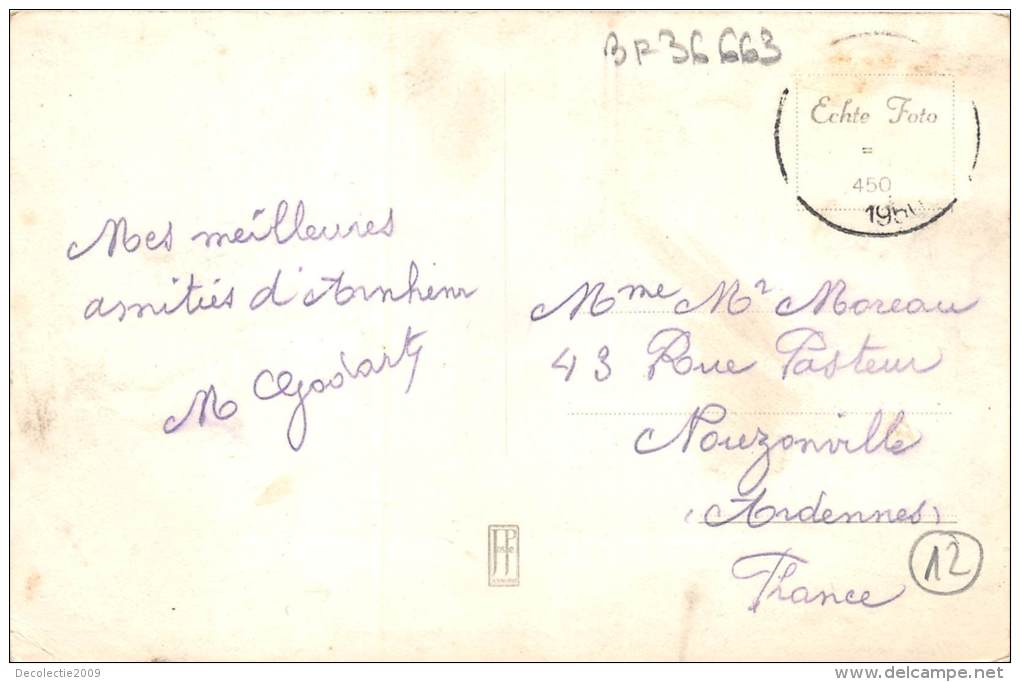 BF36663
Echte Foto
=
450
Mes meilleures
amitiés d'Arnhem
M Godart
Mme Mr Moreau
43 Rue Pasteur
Nouzonville
(Ardennes)
France
12
Decolectie2009
www.delcampe.net